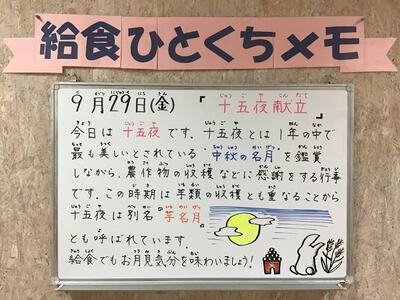 給食ひとくちメモ
9月29日(金) 「十五夜献立」
今日は十五夜です。十五夜とは1年の中で
最も美しいとされている"中秋の名月"を鑑賞
しながら、農作物の収穫などに感謝をする行事
です。この時期は芋類の収穫とも重なることから
十五夜は別名"芋名月"
とも呼ばれています。
給食でもお月見気分を味わいましょう!